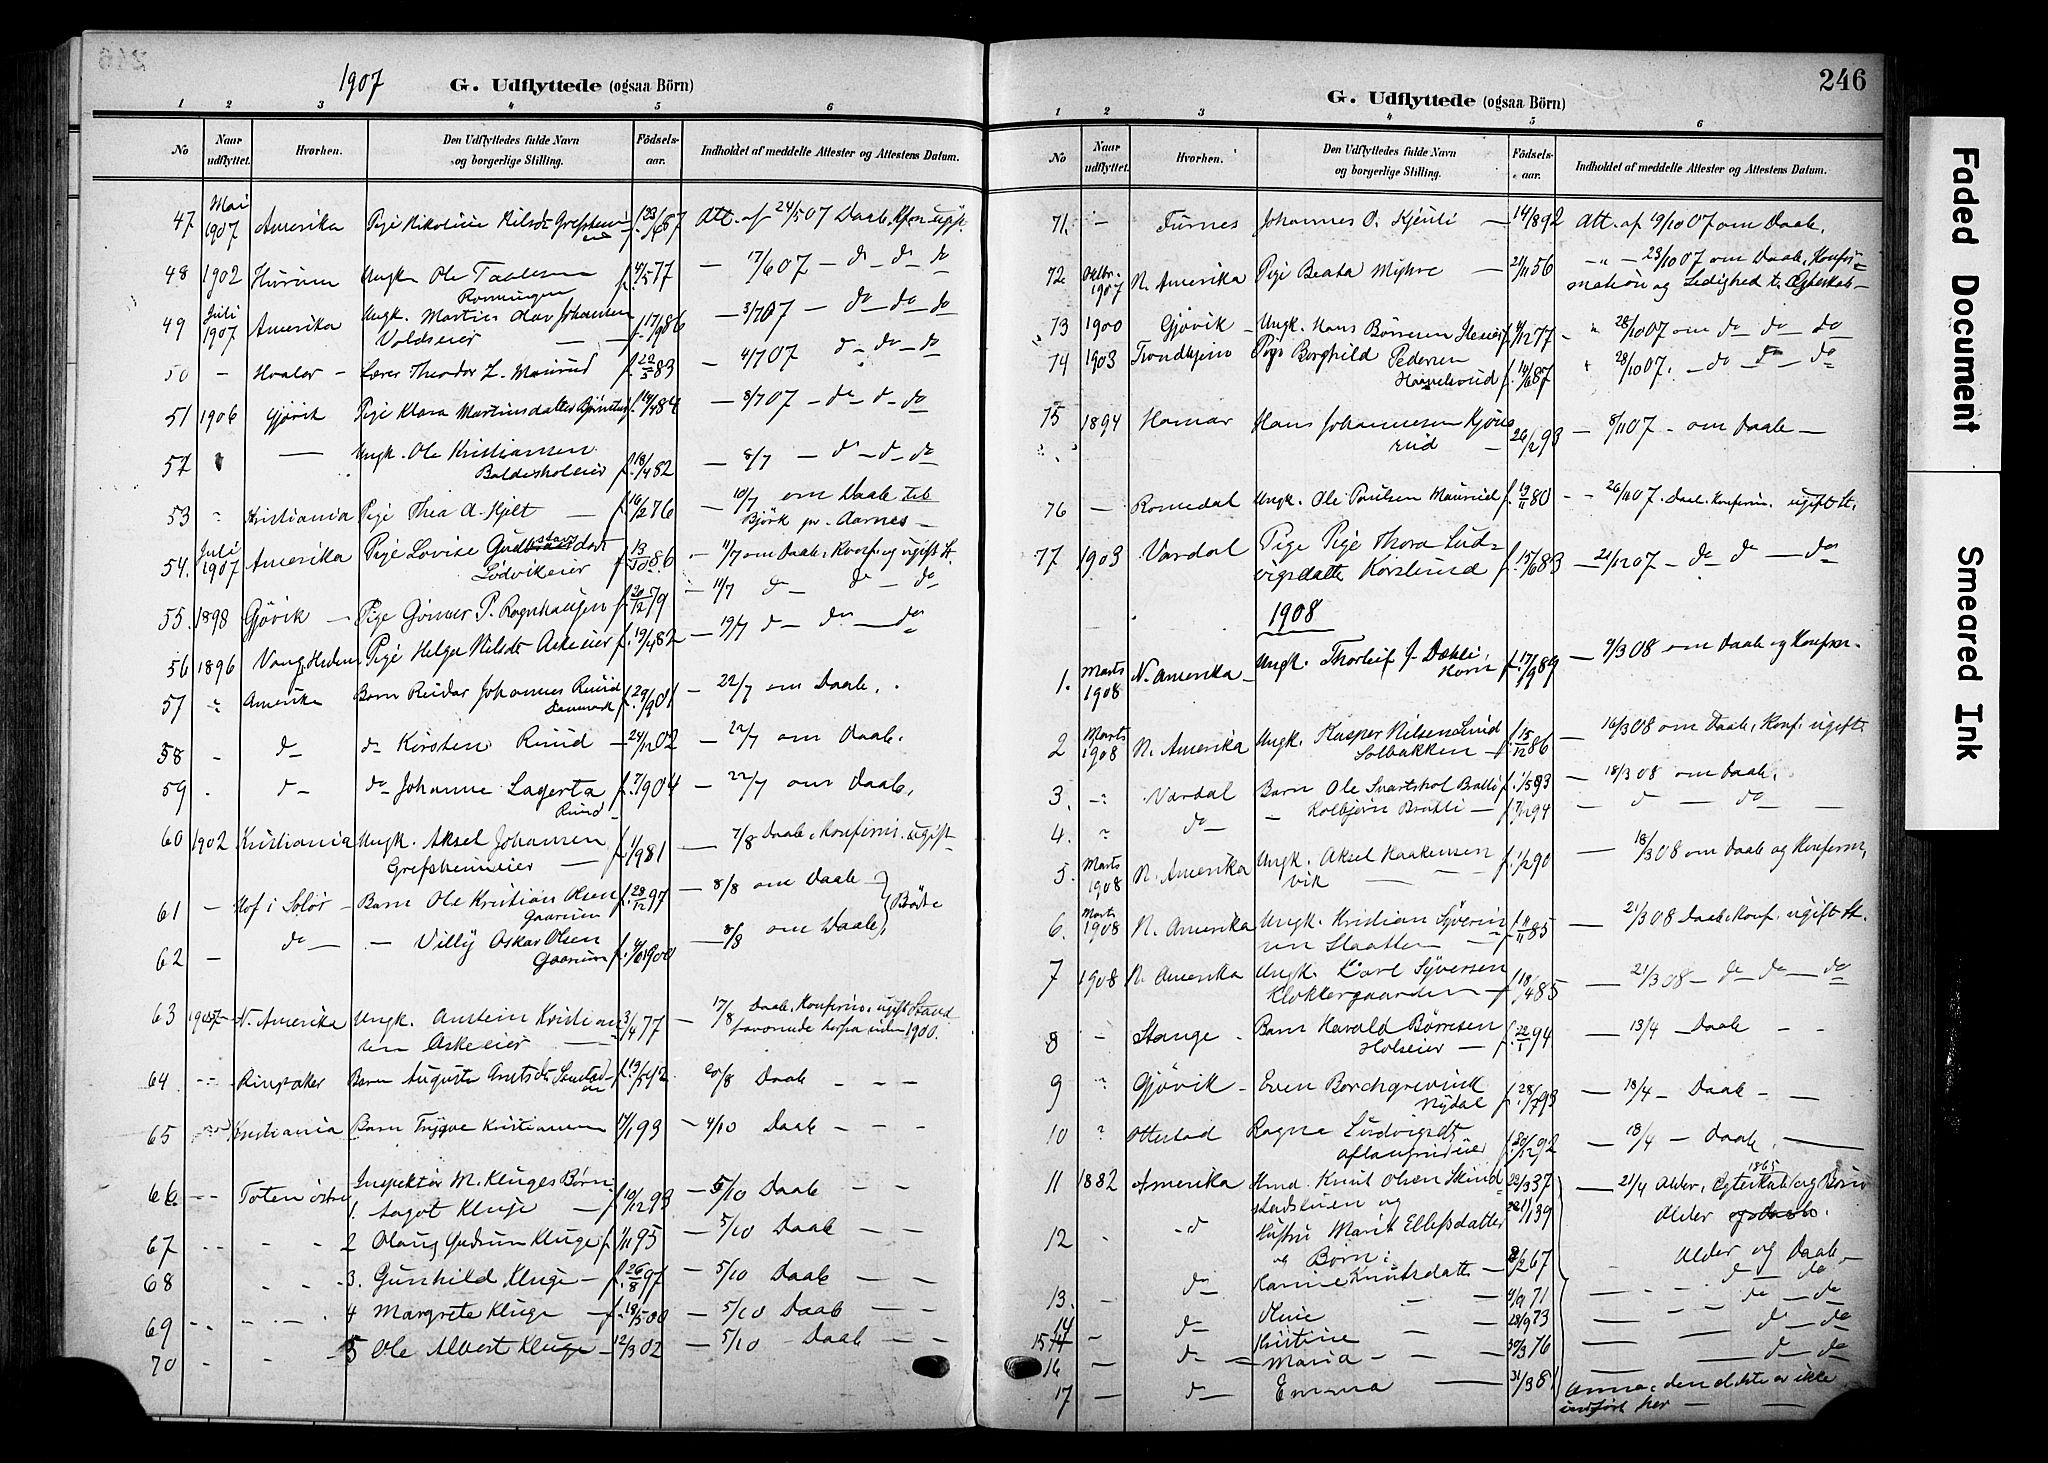 1907
G. Udflyttede (ogsaa Börn)
1 2 3 4 5 6
No
Naar udflyttet.
Hvorhen.
Den Udflyttedes fulde Navn og borgerlige Stilling.
Födsels-aar.
Indholdet af meddelte Attester og Attestens Datum.
47 Mai 1907 Amerika Pige Nikoline Nilsdt Att. af 24/5 07 Daab, Kfon. ugift.
48 1902 Hurum Ungk. Ole Taalesen Ronningen f. 4/5 77 — 17/6 07 — do — do — do
49 Juli 1907 Amerika Ungk. Martin Olav Johansen Voldseier f. 17/9 86 — 3/7 07 — do — do — do
50 - Hvaler - Lærer Theodor L. Maurud f. 20/5 83 — 4/7 07 do — do — do
51 1906 Gjövik Pige Klara Martinsdatter f. 14/4 84 — 8/7 07 — do — do — do
52 — Ungk. Ole Kristiansen Baldisholeier f. 18/4 82 — 8/7 — do — do — do
53 " Kristiania Pige Thea A. Kjelt f. 16/12 76 — 10/7 om Daab til Björk pr. Aarnes —
54. Juli 1907 Amerika Pige Lovise Lodvikeier f. 13/10 86 — 11/7 om Daab, Konf. og ugift St.
55. 1898 Gjövik — Pige Gunner P. Rognhaugen f. 20/12 79 — 11/7 do — do — do
56 1896 Vang, Hedm Pige Helga Nilsdt Askeeier f. 19/4 82 — 19/7 do — do — do
57 " Amerika Barn Reidar Johannes Ruud Danmark f. 29/9 01 — 22/7 om Daab.
58 - do do Kirsten Ruud — 24/12 02 — 22/7 om Daab.
59 . do do Johanne Lagerta Ruud f. 7/1 904 — 22/7 om Daab.
60 1902 Kristiania Ungk. Aksel Johansen Grefsheimeier f. 1/9 81 — 7/8 Daab, Konfirm. ugift
61 — Hof i Solör — Barn Ole Kristian Olsen Gaarum f. 28/12 97 — 8/8 om Daab
62 — do — Villy Askar Olsen Gaarum — 8/8 om Daab
63 N. Amerika Ungk. Anstein Kristiansen Askeeier 3/4 77 — 17/8 Daab, Konfirm, ugift Stand
herfra siden 1900.
64. Ringsaker Barn Augusta 20/8 Daab
65 Kristiania Barn Trygve Kristiansen 17/1 93 — 4/10 Daab
66 -- Toten östre Inspektör M. Kluges Börn
1. Aagot Kluge f. 10/12 93 — 5/10 Daab
67 2 Olaug Gudrun Kluge f. 1/11 95 — 5/10 Daab
68 3. Gunhild Kluge — f. 26/8 97 — 5/10 Daab
69 4 Margrete Kluge — f. 18/5 00 — 5/10 Daab
70 5 Ole Albert Kluge — 12/3 02 — 5/10 — Daab
246
G. Udflyttede (ogsaa Börn)
1 2 3 4 5 6
No
Naar udflyttet.
Hvorhen.
Den Udflyttedes fulde Navn og borgerlige Stilling.
Födsels-aar.
Indholdet af meddelte Attester og Attestens Datum.
71. — Furnes Johannes O. Kjenli — 14/8 92 Att. af 19/10 07 om Daab.
72 Oktbr. 1907 N. Amerika Pige Beata Myhre — 21/11 56 — " — 23/10 07 om Daab, Konfirmation og Ledighed t. Ægteskab —
73 1900 Gjövik — Ungk. Hans Börresen 4/12 77 " 28/10 07 om do do do
74 1903 Trondhjem Pige Borghild Pedersen f. 14/6 87 " 28/10 07. — do do — do
75 1894 Hamar Hans Johannesen Kjönerud — 26/2 93 — 8/11 07 — om Daab —
76 — Romedal Ungk. Ole Poulsen Maurud f. 19/11 80 — 26/11 07. Daab. Konfirm. ugift St.
77 1903 Vardal Pige Pige Thora Ludvigsdatte Korslund f. 15/6 83 — 21/12 07 — do do — do
1908
1. Marts 1908 N. Amerika — Ungk. Thorleif J. Dæhli, Horn f. 17/9 89 — 9/3 08 om Daab og Konfirm.
2 Marts 1908 N. Amerika Ungk. Kasper Nilsen Lund Solbakken f. 15/12 86 — 16/3 08 om Daab, Konf. ugift
3. — Vardal Barn Ole Svartshol Bratli f. 1/5 93 — 18/3 08 om Daab.
4. " do — Kolbjörn Bratli — f. 7/12 94 — do — do
5. Marts 1908 N. Amerika Ungk. Aksel Haakensen vik f. 1/12 90 — 18/3 08 om Daab og Konfirm,
6. Marts 1908 N. Amerika Ungk. Kristian Syverinsen Slaatten f. 11/11 85 — 21/3 08 Daab, Konf. ugift St.
7 1908 N. Amerika Ungk. Karl Syversen Klokkergaarden f. 18/4 85 — 21/3 08 — do do — do
8 - Stange — Barn Harald Börresen Holseier — f. 22/1 94 — 13/4 — Daab
9 " Gjövik — Even Borchgrevink Nydal f. 28/7 93 — 18/4 — Daab
10 " Ottestad Ragna Ludvigsdt f. 20/12 92 — 18/4 — Daab.
11 1882 Amerika Hmd. Knut Olsen og 22/3 37 — 21/4 Alder, Egteskab 1865 og Börns
Alder
12 do Hustru Marit Ellefsdatter 22/1 39
og Börn:
Karine Knutsdatt — 8/2 67 Alder og Daab —
13. do — 4/9 71 — do — do
14 do Oline 28/9 73 — do — do
15 Kristine 30/3 76 — do — do
16 — do — Maria — do — do
17 — do Emma 31/3 81
Anna, den eldste er ikke
indfört her —
Faded Document
Smeared Ink